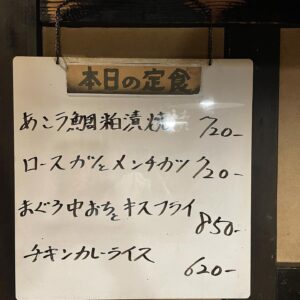 本日の定食
あこう鯛粕漬焼 720-
ロースカツとメンチカツ 720-
まぐろ中おちとキスフライ 850-
チキンカレーライス 620-